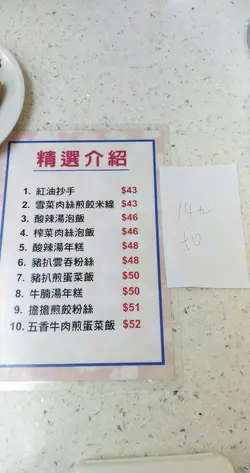 精選介紹
1. 紅油抄手 $43
2. 雪菜肉絲煎餃米線 $43
3. 酸辣湯泡飯 $46
4. 榨菜肉絲泡飯 $46
5. 酸辣湯年糕 $48
6. 豬扒雲吞粉絲 $48
7. 豬扒煎蛋菜飯 $50
8. 牛腩湯年糕 $50
9. 擔擔煎餃粉絲 $51
10. 五香牛肉煎蛋菜飯 $52